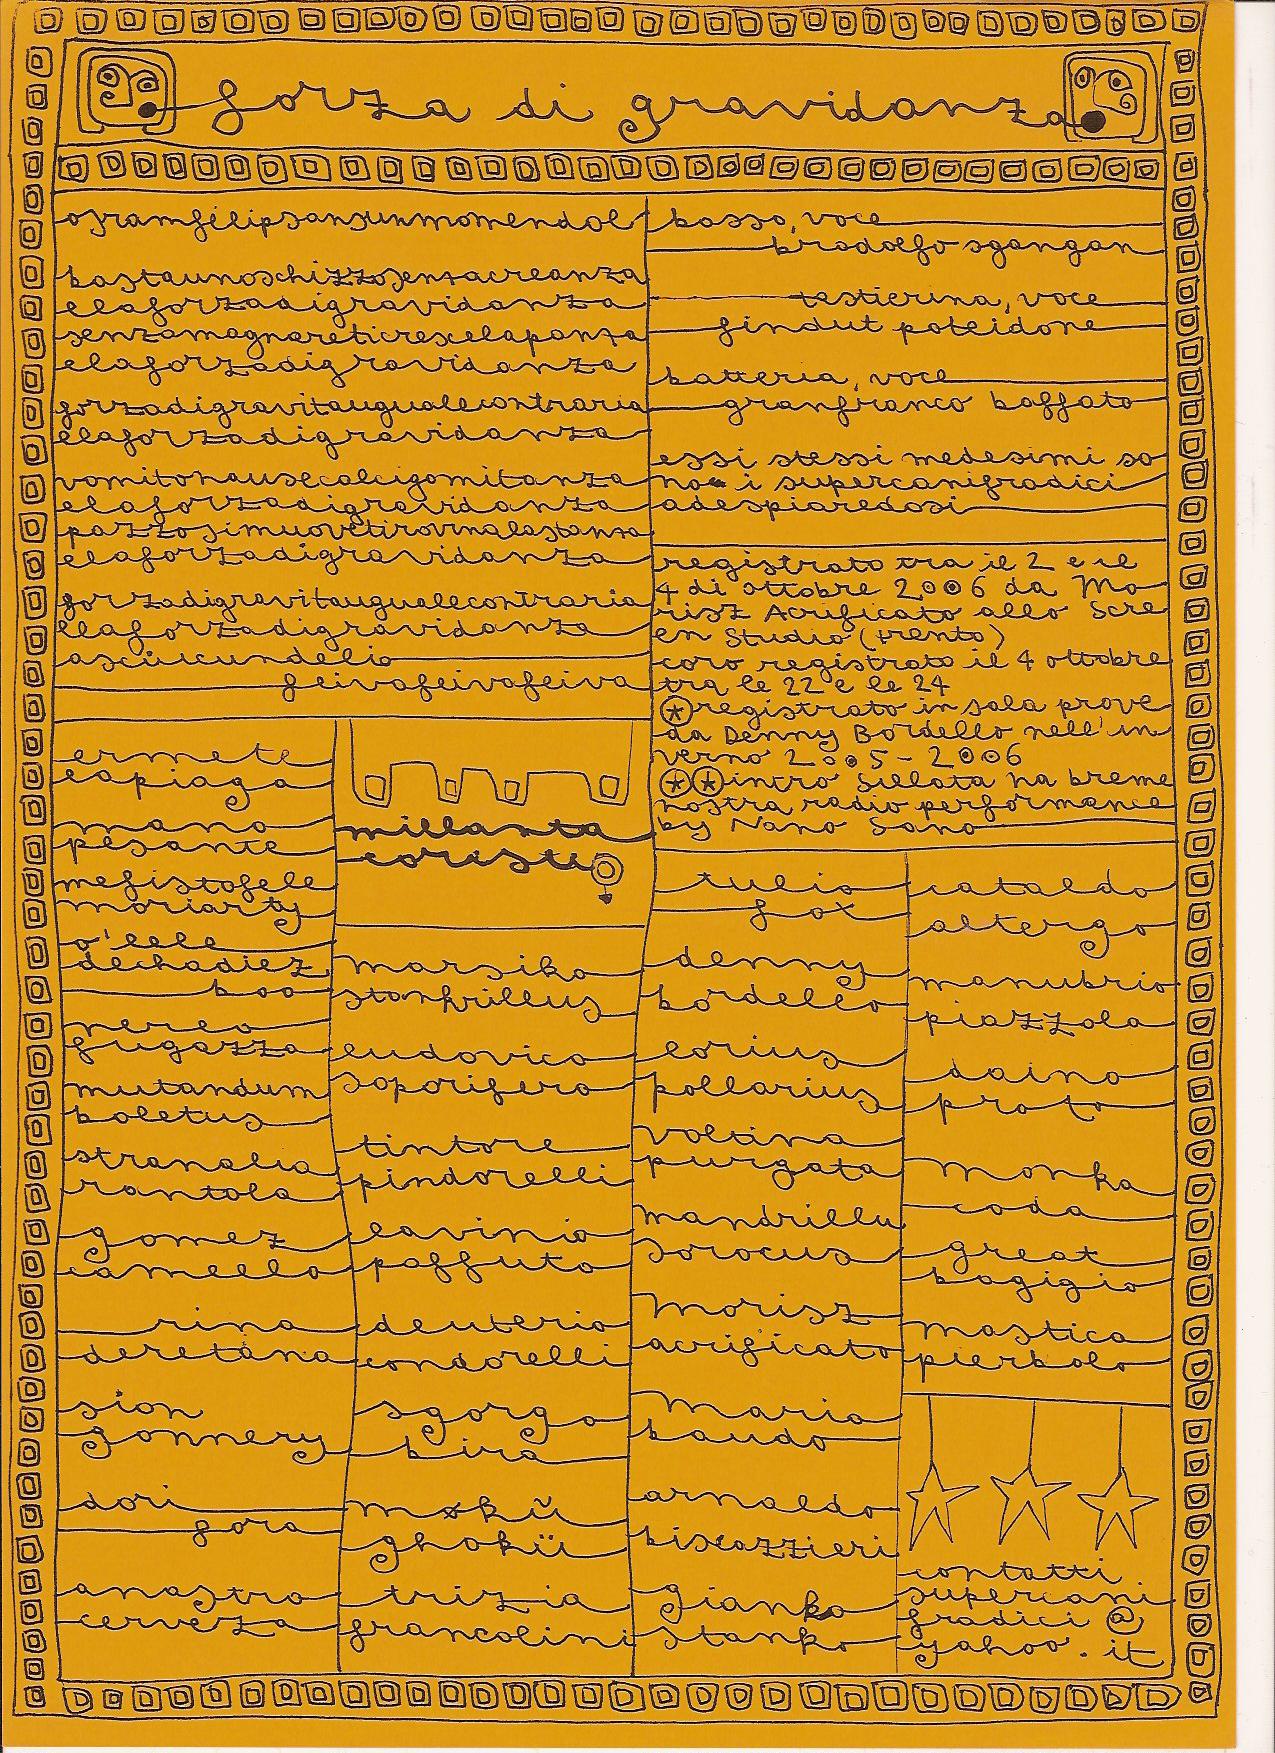 forza di gravidanza
osramfilipsonsunmomendol
bastaunoschizzosenzacreanza
elaforzadigravidanza
senzamagnareticrescelapanza
elaforzadigravidanza
forzadigravitaugualecontraria
elaforzadigravidanza
vomitonausecalcigomitanza
elaforzadigravidanza
pazzosimuovetirovinalastanza
elaforzadigravidanza
forzadigravitaugualecontraria
elaforzadigravidanza
feivafeivafeiva
basso, voce
brodolfo sgangan
testierina, voce
findut poteidone
batteria, voce
granfranco baffato
essi stessi medesimi so
no i supercanifradici
adespiaredosi
registrato tra il 2 e il
4 di ottobre 2006 da Mo
risz Acrificato allo Scre
en Studio (trento)
coro registrato il 4 ottobre
tra le 22 e le 24
* registrato in sala prove
da Denny Bordello nell'in
verno 2005-2006
** intro sillata na breme
nostra radio performance
by Nano Sano
millanta
coristi
ermete
capiaga
mano
pesante
mefistofele
moriarty
o'lele
dechadiez
boo
nereo
fugazza
mutandum
boletus
stranalia
rantola
gomez
camello
rina
deretana
sion
gonnery
dori
fora
anastro
cerveza
marsiko
stonkrillus
ludovico
soporifero
tintore
pindorelli
lavinio
paffuto
deuterio
condorelli
sgorgo
bira
mokü
ghokü
trizia
francolini
tulio
fox
denny
bordello
lorius
pollarius
voltina
purgata
mandrillu
sorocus
Morisz
acrificato
Mario
baudo
arnaldo
biscazzieri
gianko
stanko
cataldo
altergo
manubrio
piazzola
daino
proto
monka
coda
great
bagigio
mastica
pierbolo
contatti
supercani
fradici @
yahoo.it